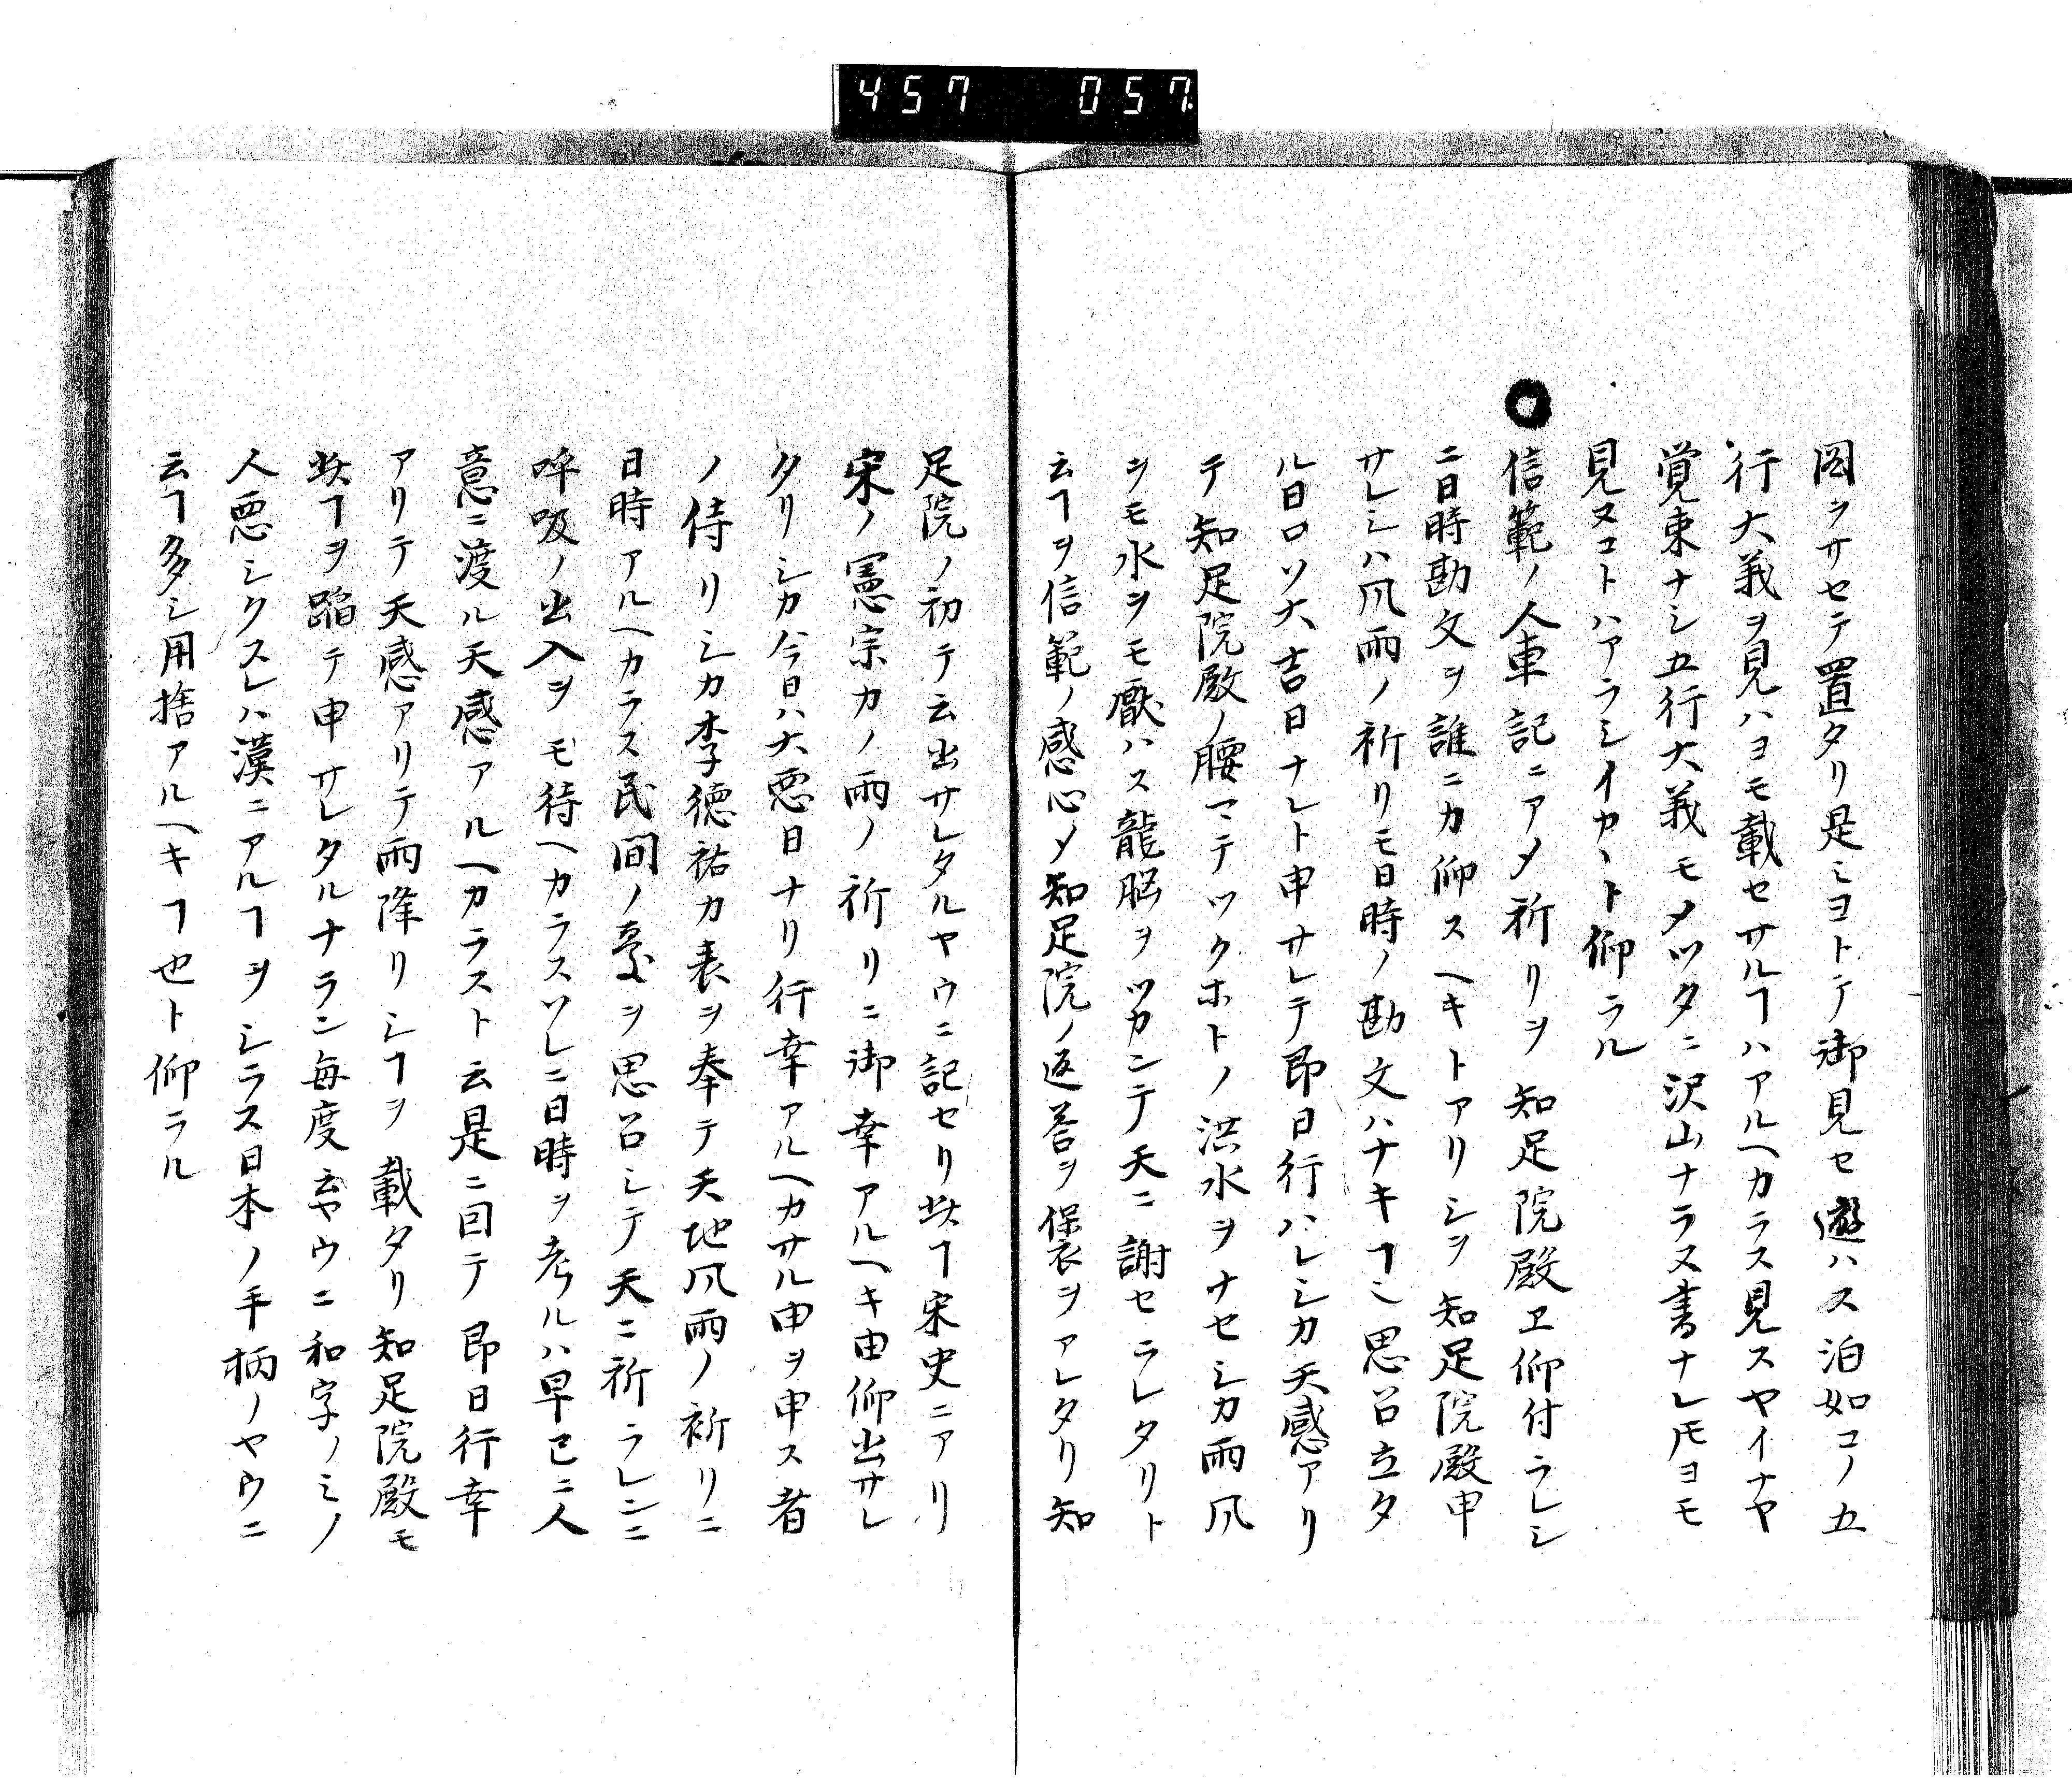 457 057
図ヲサセテ置タリ是ミヨトテ御見セ遊ハス泊如コノ五
行大義ヲ見ハヨモ載セサルヿハアルヘカラス見スヤイナヤ
覚束ナシ五行大義モメツタニ沢山ナラヌ書ナレ𪜈ヨモ
見ヌコトハアラシイカヽト仰ラル
○信範ノ人車記ニアメ祈リヲ知足院殿ヱ仰付ラレシ
ニ日時勘文ヲ誰ニカ仰スヘキトアリシヲ知足院殿申
サレシハ風雨ノ祈リモ日時ノ勘文ハナキヿミ思召立タ
ル日ロソ大吉日ナレト申サレテ即日行ハレシカ天感アリ
テ知足院殿ノ腰マテツクホトノ洪水ヲナセシカ雨風
ヲモ水ヲモ厭ハス龍脳ヲツカンテ天ニ謝セラレタリト
云ヿヲ信範ノ感心メ知足院ノ返答ヲ褒ヲアレタリ知
足院ノ初テ云出サレタルヤウニ記セリ此ヿ宋史ニアリ
宋ノ憲宗カノ雨ノ祈リニ御幸アルヘキ由仰出サレ
タリシカ今日ハ大悪日ナリ行幸アルヘカサル申ヲ申ス者
ノ侍リシカ李徳祐カ表ヲ奉テ天地風雨ノ祈リニ
日時アルヘカラス民間ノ憂ヲ思召シテ天ニ祈ラレンニ
呼吸ノ出入ヲモ待ヘカラスソレニ日時ヲ考ルハ早已ニ人
意ニ渡ル天感アルヘカラスト云是ニ因テ即日行幸
アリテ天感アリテ雨降リシヿヲ載タリ知足院殿モ
此ヿヲ蹈テ申サレタルナラン毎度云ヤウニ和字ノミノ
人悪シクスレハ漢ニアルヿヲシラス日本ノ手柄ノヤウニ
云ヿ多シ用捨アルヘキヿ也ト仰ラル